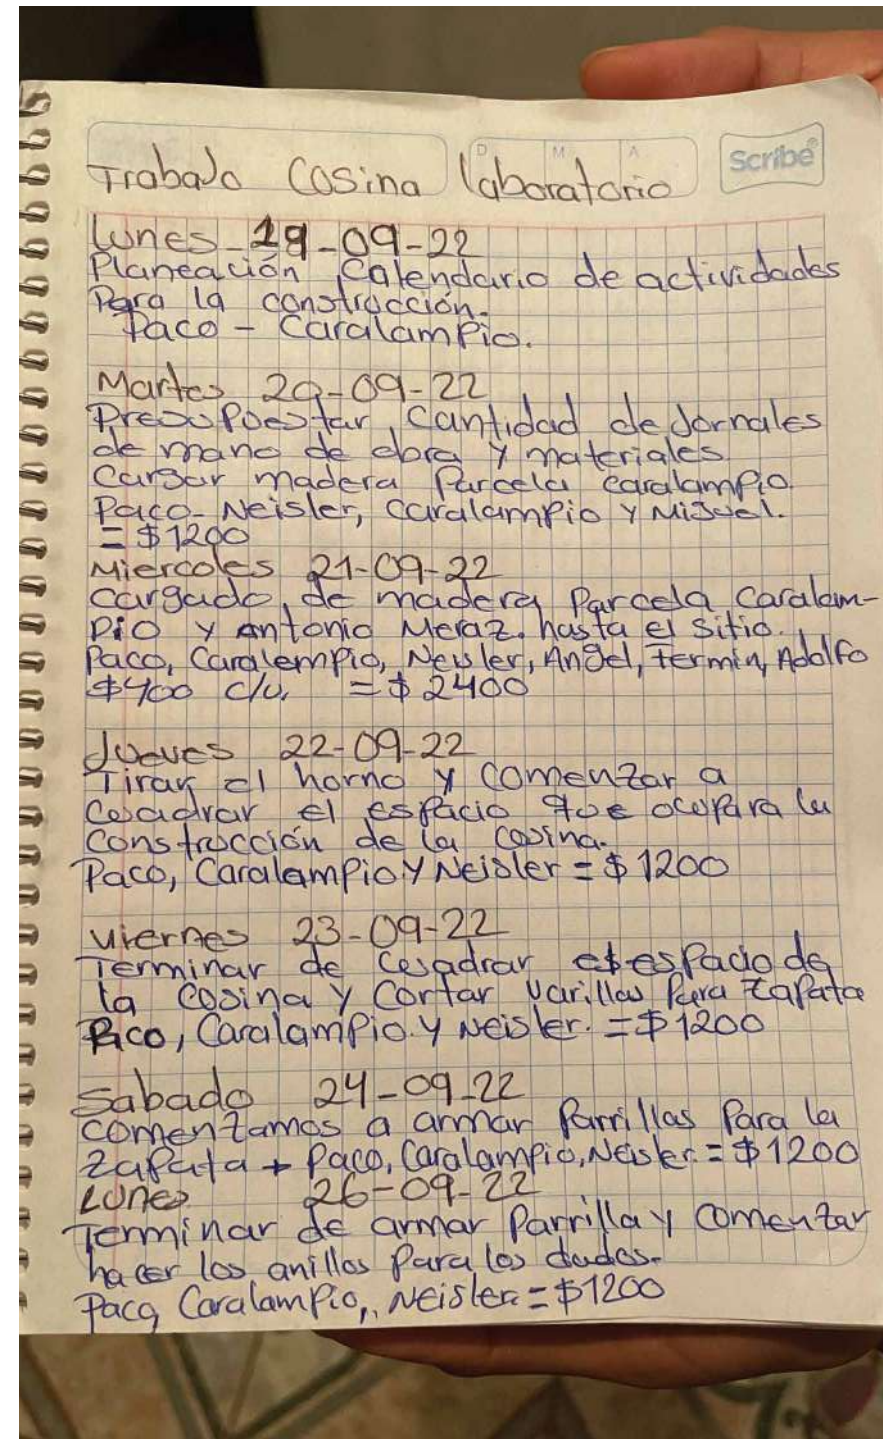 Trabajo Cosina laboratorio
D M A
Scribe
Lunes 19-09-22
Planeación Calendario de actividades
Para la construcción.
Paco - Caralampio.
Martes 20-09-22
Presupoestar cantidad de Jornales
de mano de obra y materiales
Cargar madera Parcela caralampio.
Paco- Neisler, caralampio y Miguel.
= $1200
Miercoles 21-09-22
cargado de madera Parcela Caralam-
pio y Antonio Meraz. hasta el sitio.
Paco, Caralempio, Neisler, Angel, Fermin, Adolfo
$400 c/u. = $2400
Jueves 22-09-22
Tirar el horno y comenzar a
Cuadrar el espacio que ocupara la
Construcción de la cosina.
Paco, Caralampio y Neisler = $1200
Viernes 23-09-22
Terminar de cuadrar el espacio de
la cosina y Cortar Varillas Para zapata
Paco, Caralampio y Neisler. = $1200
Sabado 24-09-22
comenzamos a armar Parrillas Para la
zapata + Paco, Caralampio, Neisler = $1200
Lunes 26-09-22
Terminar de armar Parrilla y comenzar
hacer los anillos Para los dados.
Paco, Caralampio, Neisler = $1200